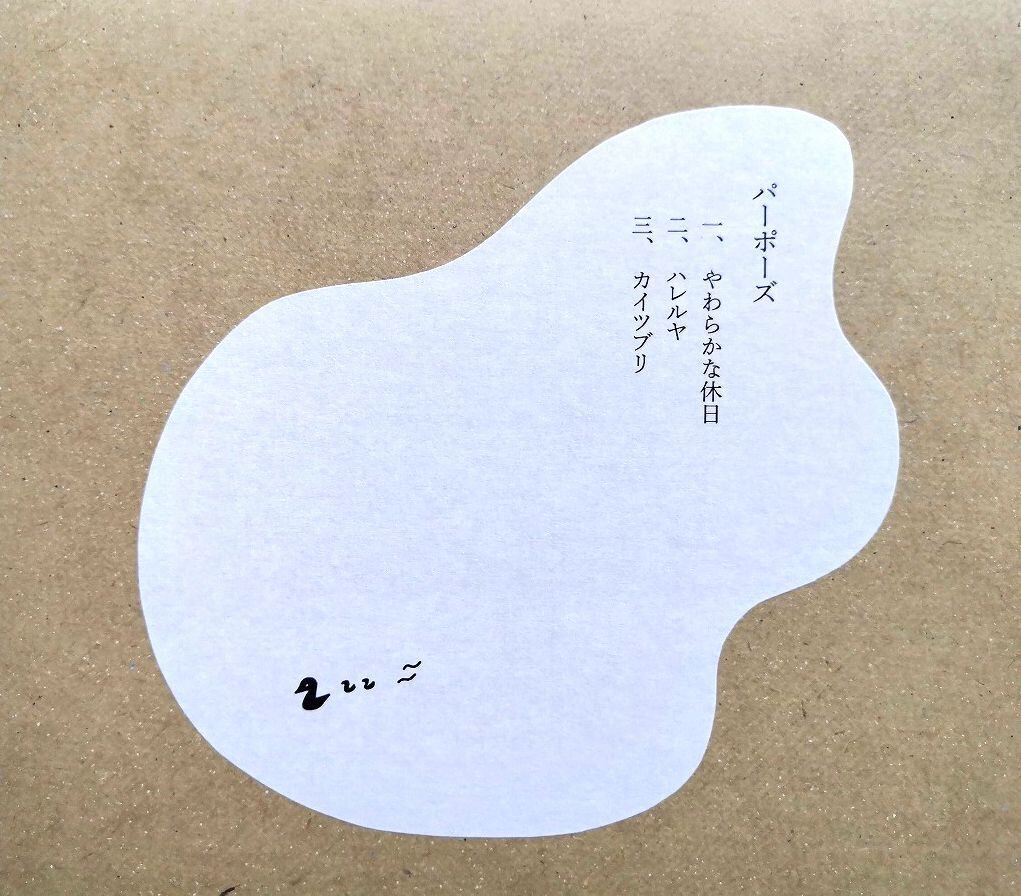 パーポーズ
一、やわらかな休日
二、ハレルヤ
三、カイツブリ